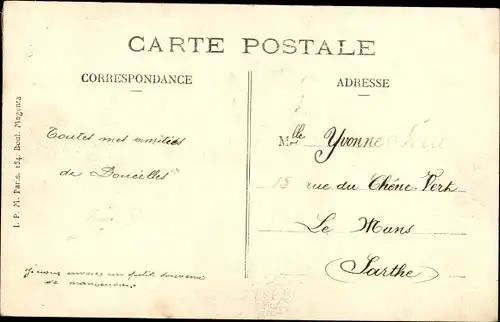 CARTE POSTALE
CORRESPONDANCE
ADRESSE
I. P. M. Paris. 154, Boul. Magenta
Toutes mes amitiés
de Doucelles
Mlle Yvonne
15 rue du Chêne-Vert
Le Mans
(Sarthe)
je vous envoie un petit souvenir
de